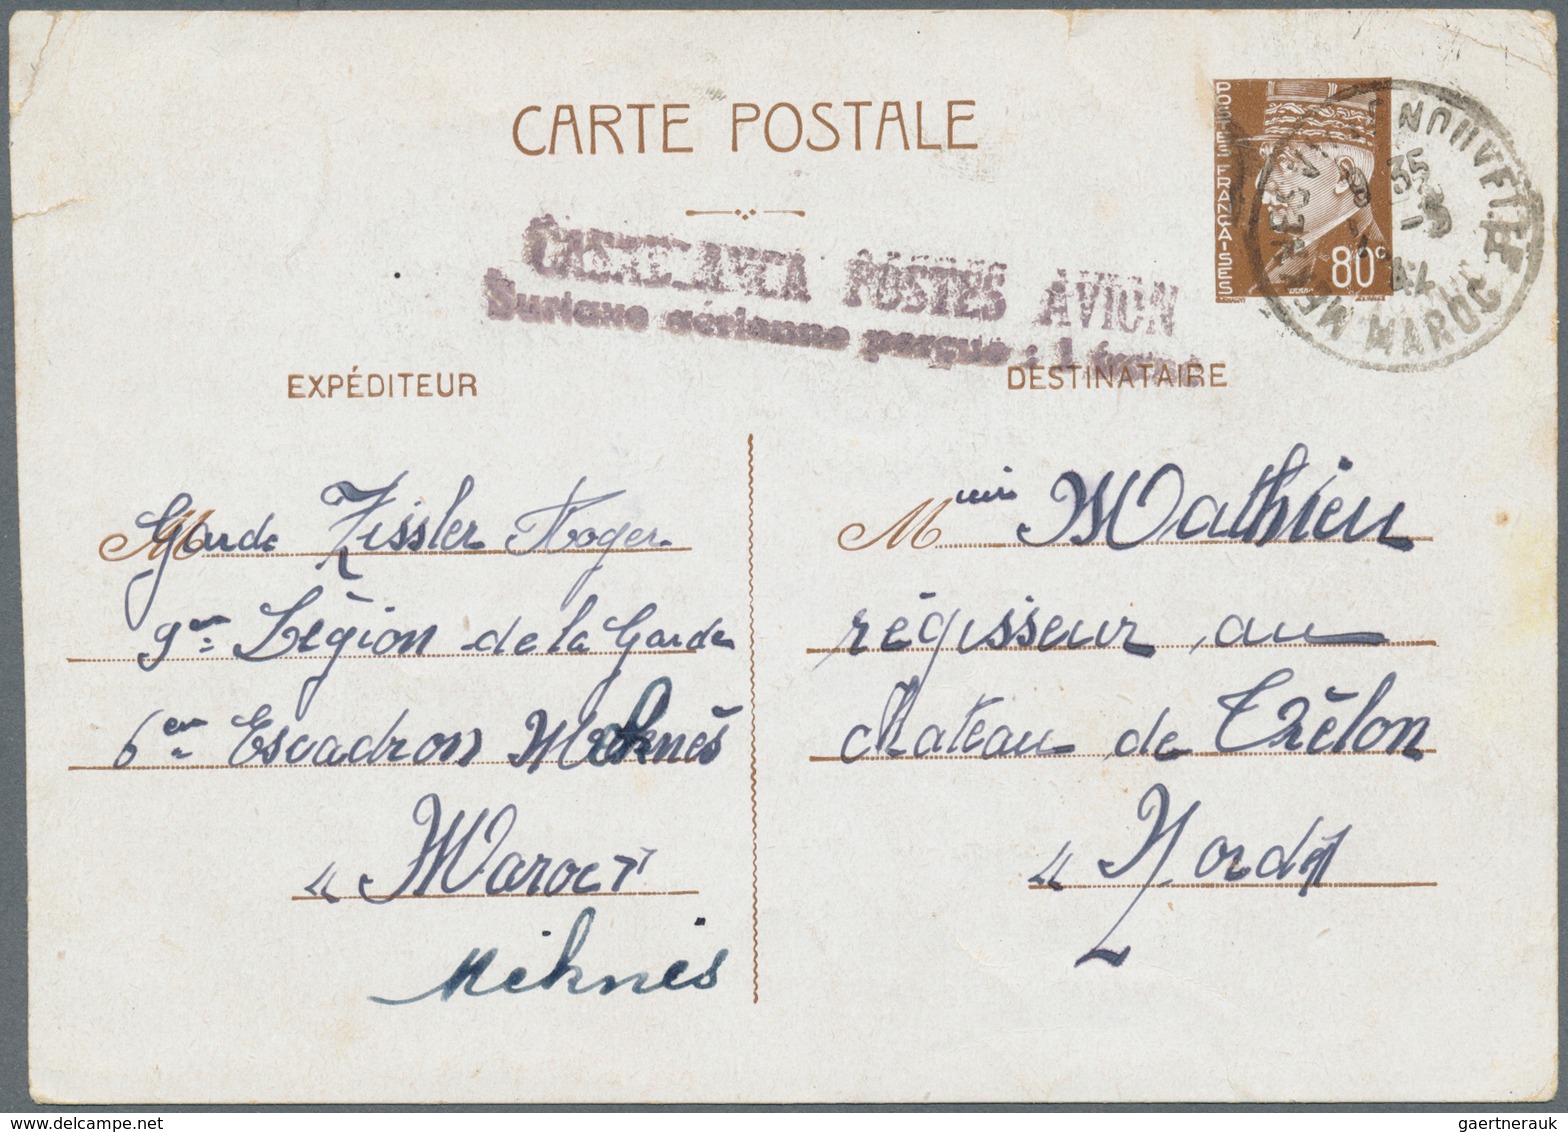 CARTE POSTALE
POSTES FRANÇAISES
80c
MEKNES VILLE NOUVELLE
35
MAROC
CASABLANCA POSTES AVION
Surtaxe aérienne perçue : 1 franc
EXPÉDITEUR
DESTINATAIRE
M Garde Zissler Roger
9em Légion de la Garde
6em Escadron Meknès
"Maroc"
Meknès
M Mathieu
régisseur au
chateau de Trélon
"Nord"
gaertnerauk / delcampe.net